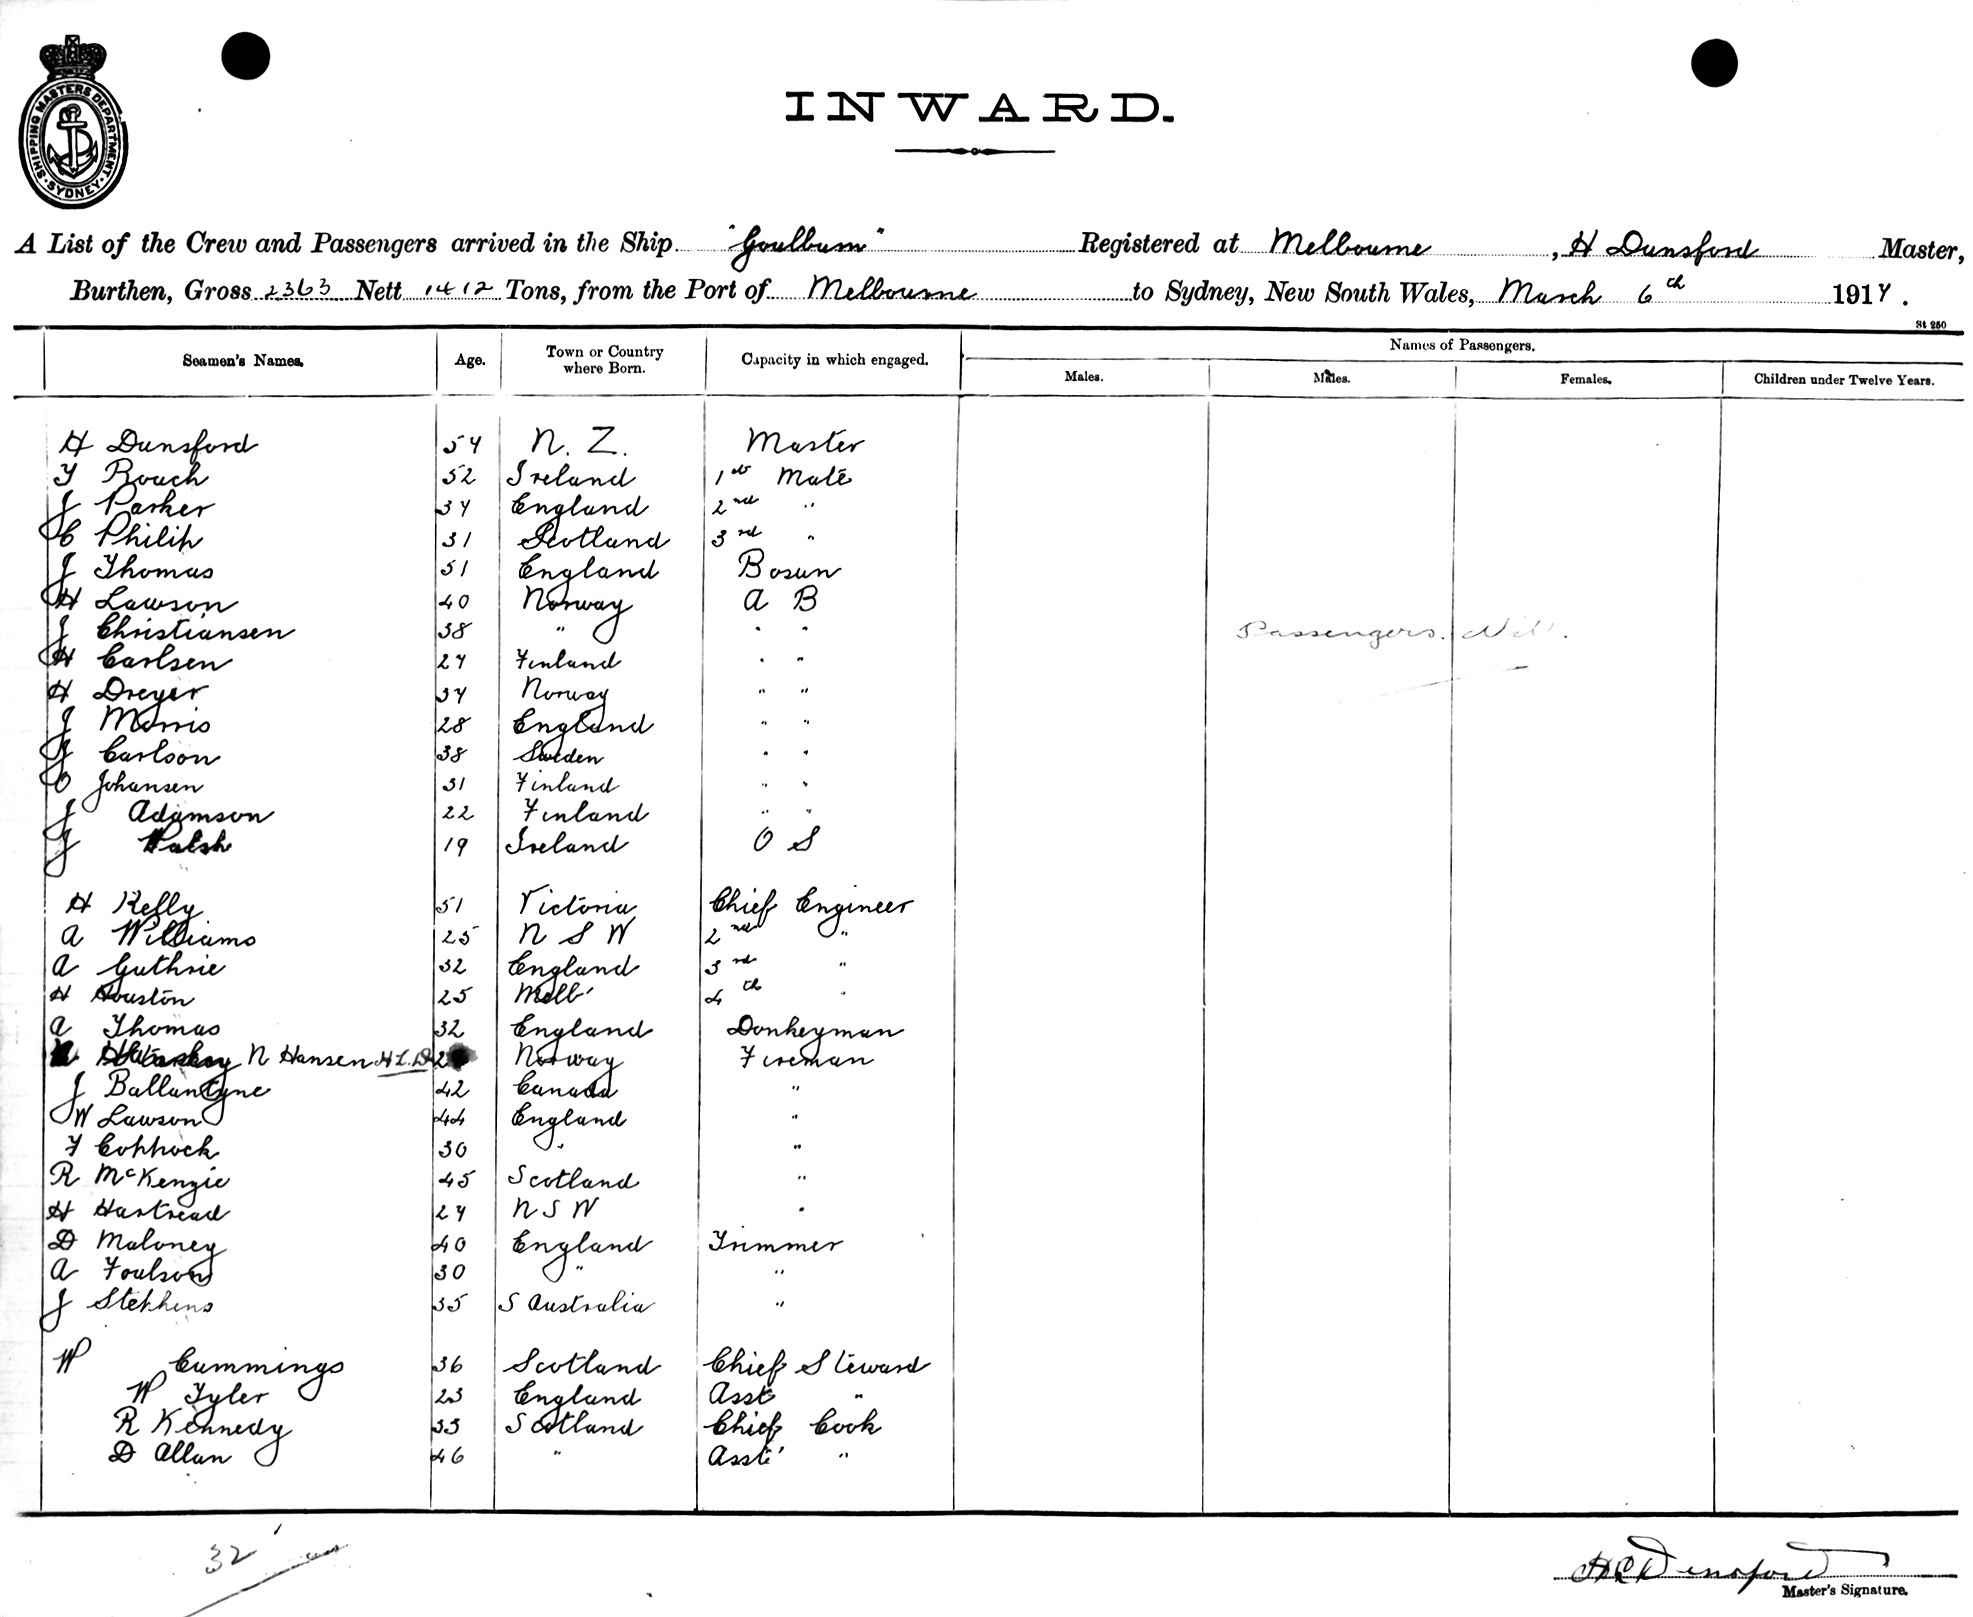 SHIPPING MASTERS DEPARTMENT · SYDNEY ·
INWARD.
A List of the Crew and Passengers arrived in the Ship "Goulburn" Registered at Melbourne, H Dunsford Master,
Burthen, Gross 2363 Nett 1412 Tons, from the Port of Melbourne to Sydney, New South Wales, March 6th 1917.
St 250
Seamen's Names. Age. Town or Country where Born. Capacity in which engaged. Names of Passengers.
Males. Males. Females. Children under Twelve Years.
H Dunsford 54 N. Z. Master
T Roach 52 Ireland 1st Mate
J Parker 37 England 2nd "
C Philip 31 Scotland 3rd "
J Thomas 51 England Bosun
H Lawson 40 Norway A B
J Christiansen 38 " " "
Passengers. Nil.
H Carlsen 27 Finland " "
H Dreyer 37 Norway " "
J Morris 28 England " "
J Carlson 38 Sweden " "
O Johansen 31 Finland " "
J Adamson 22 Finland " "
J Walsh 19 Ireland O S
H Kelly 51 Victoria Chief Engineer
A Williams 25 N S W 2nd "
A Guthrie 32 England 3rd "
H Houston 25 Melb' 4th "
A Thomas 32 England Donkeyman
N Hansen H L D Norway Fireman
J Ballantyne 42 Canada "
W Lawson 44 England "
F Coppock 30 " "
R McKenzie 45 Scotland "
H Hartread 27 N S W "
D Maloney 40 England Trimmer
A Foulson 30 " "
J Stephens 35 S Australia "
W Cummings 36 Scotland Chief Steward
W Tyler 23 England Asst "
R Kennedy 33 Scotland Chief Cook
D Allan 46 " Asst' "
32
H L Dunsford
Master's Signature.